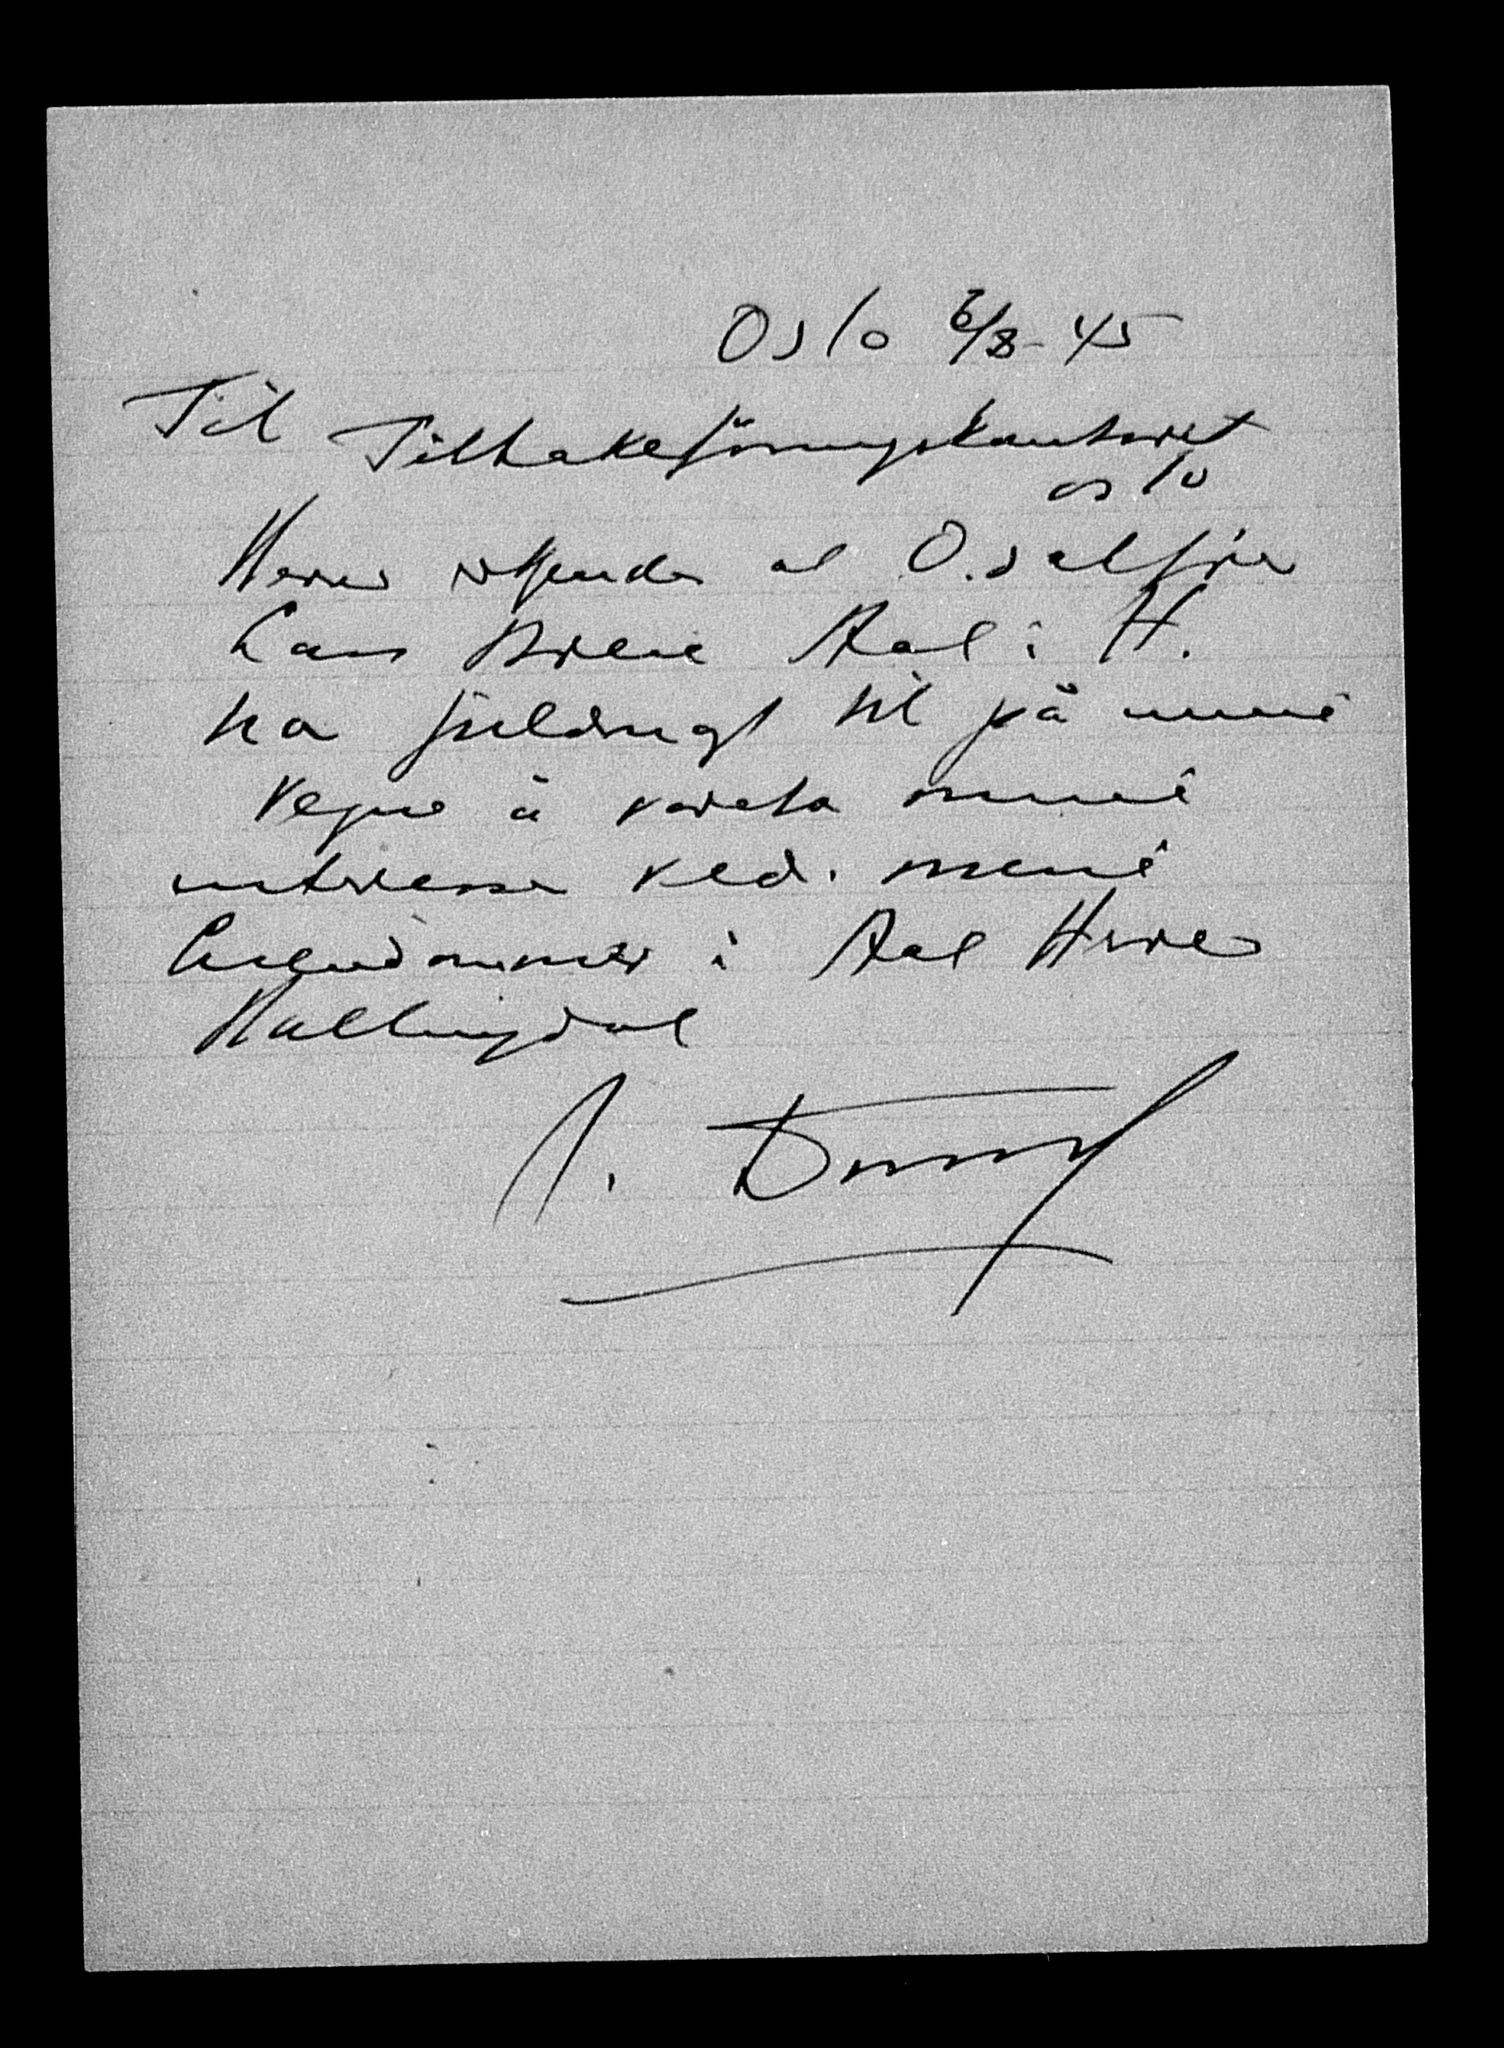 Oslo 6/8-45
Til Tilbakeføringskontoret
Oslo
Herved at O.r.sakfører
Lars Aal i H.
har fuldmagt til på mine
vegne å vareta mine
interesser ved. mine
Eiendommer i Aal Hove
Hallingdal